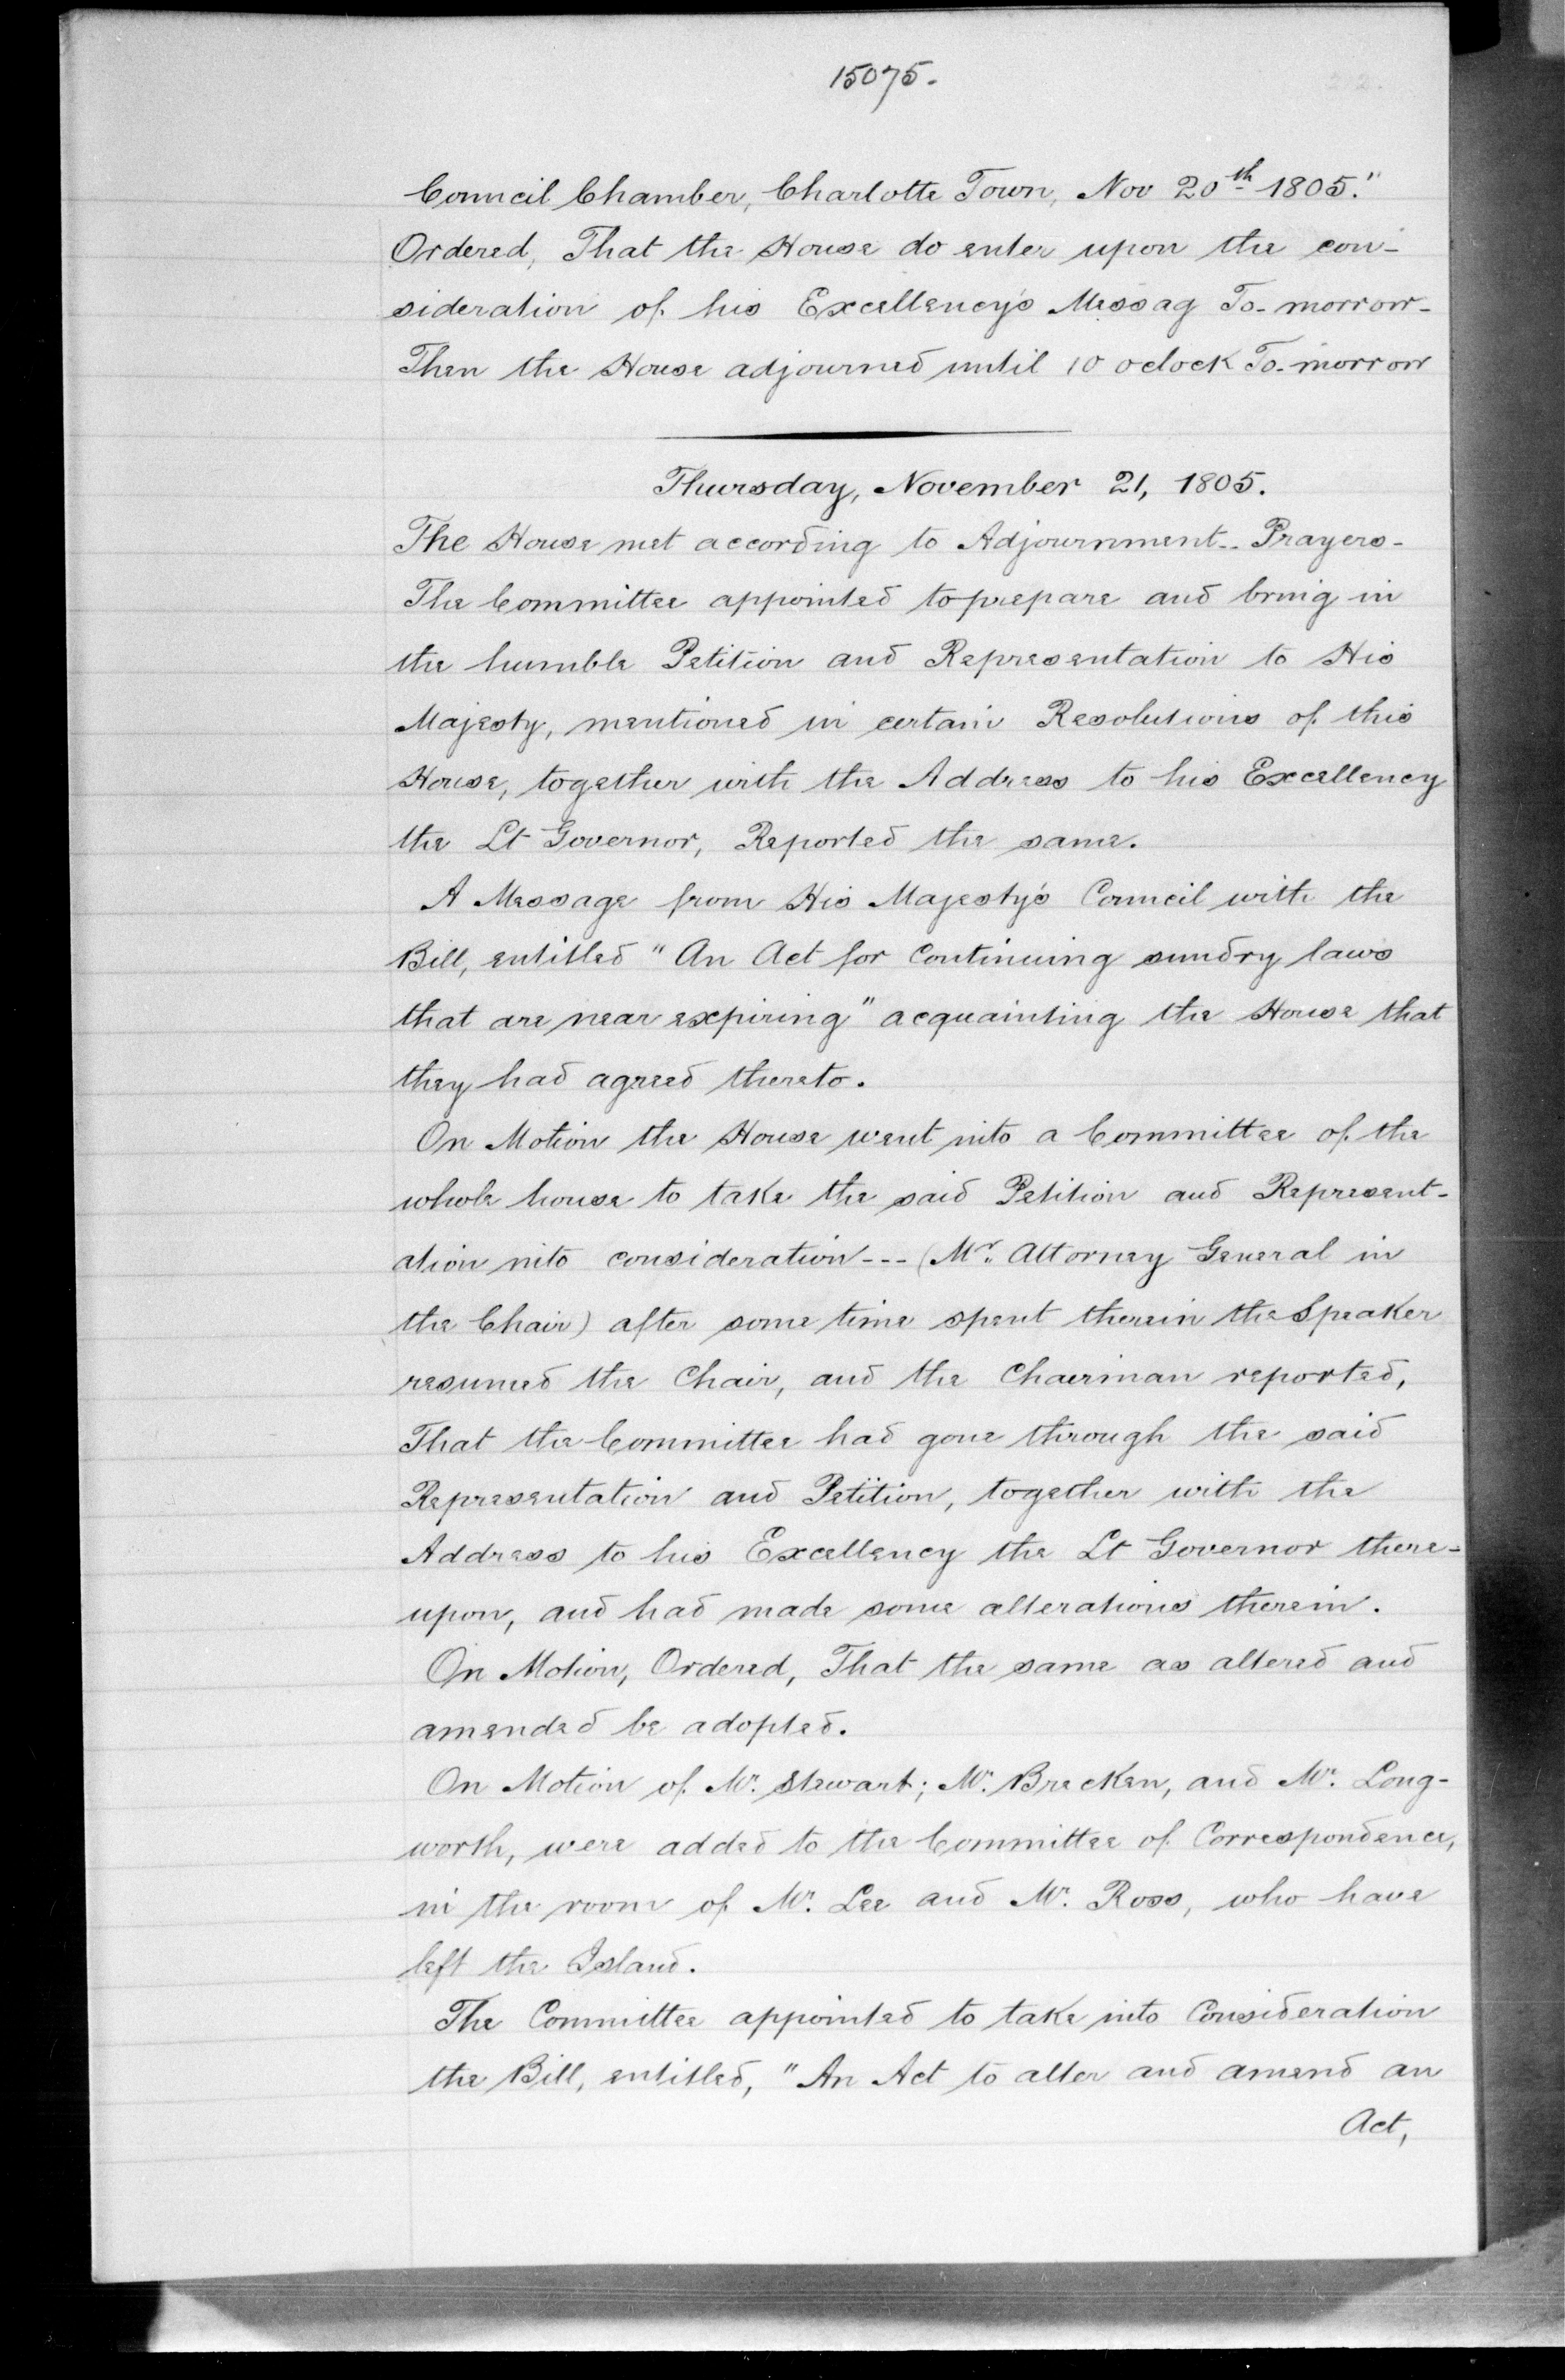 15075.
Council Chamber, Charlotte Town, Nov 20th 1805."
Ordered, That the House do enter upon the con-
sideration of his Excellency's Messag To-morrow-
Then the House adjourned until 10 oclock To-morrow
Thursday, November 21, 1805.
The House met according to Adjournment-- Prayers-
The Committee appointed to prepare and bring in
the humble Petition and Representation to His
Majesty, mentioned in certain Resolutions of this
House, together with the Address to his Excellency
the Lt Governor, Reported the same.
A Message from His Majesty's Council with the
Bill, entitled "An Act for Continuing sundry laws
that are near expiring" acquainting the House that
they had agreed thereto.
On Motion the House went into a Committee of the
whole house to take the said Petition and Represent-
ation into consideration --- (Mr. Attorney General in
the Chair) after some time spent therein the Speaker
resumed the Chair, and the Chairman reported,
That the Committee had gone through the said
Representation and Petition, together with the
Address to his Excellency the Lt Governor there-
upon, and had made some alterations therein.
On Motion, Ordered, That the same as altered and
amended be adopted.
On Motion of Mr. Stewart; Mr. Brecken, and Mr. Long-
worth, were added to the Committee of Correspondence,
in the room of Mr. Lee and Mr. Ross, who have
left the Island.
The Committee appointed to take into Consideration
the Bill, entitled, "An Act to alter and amend an
Act,